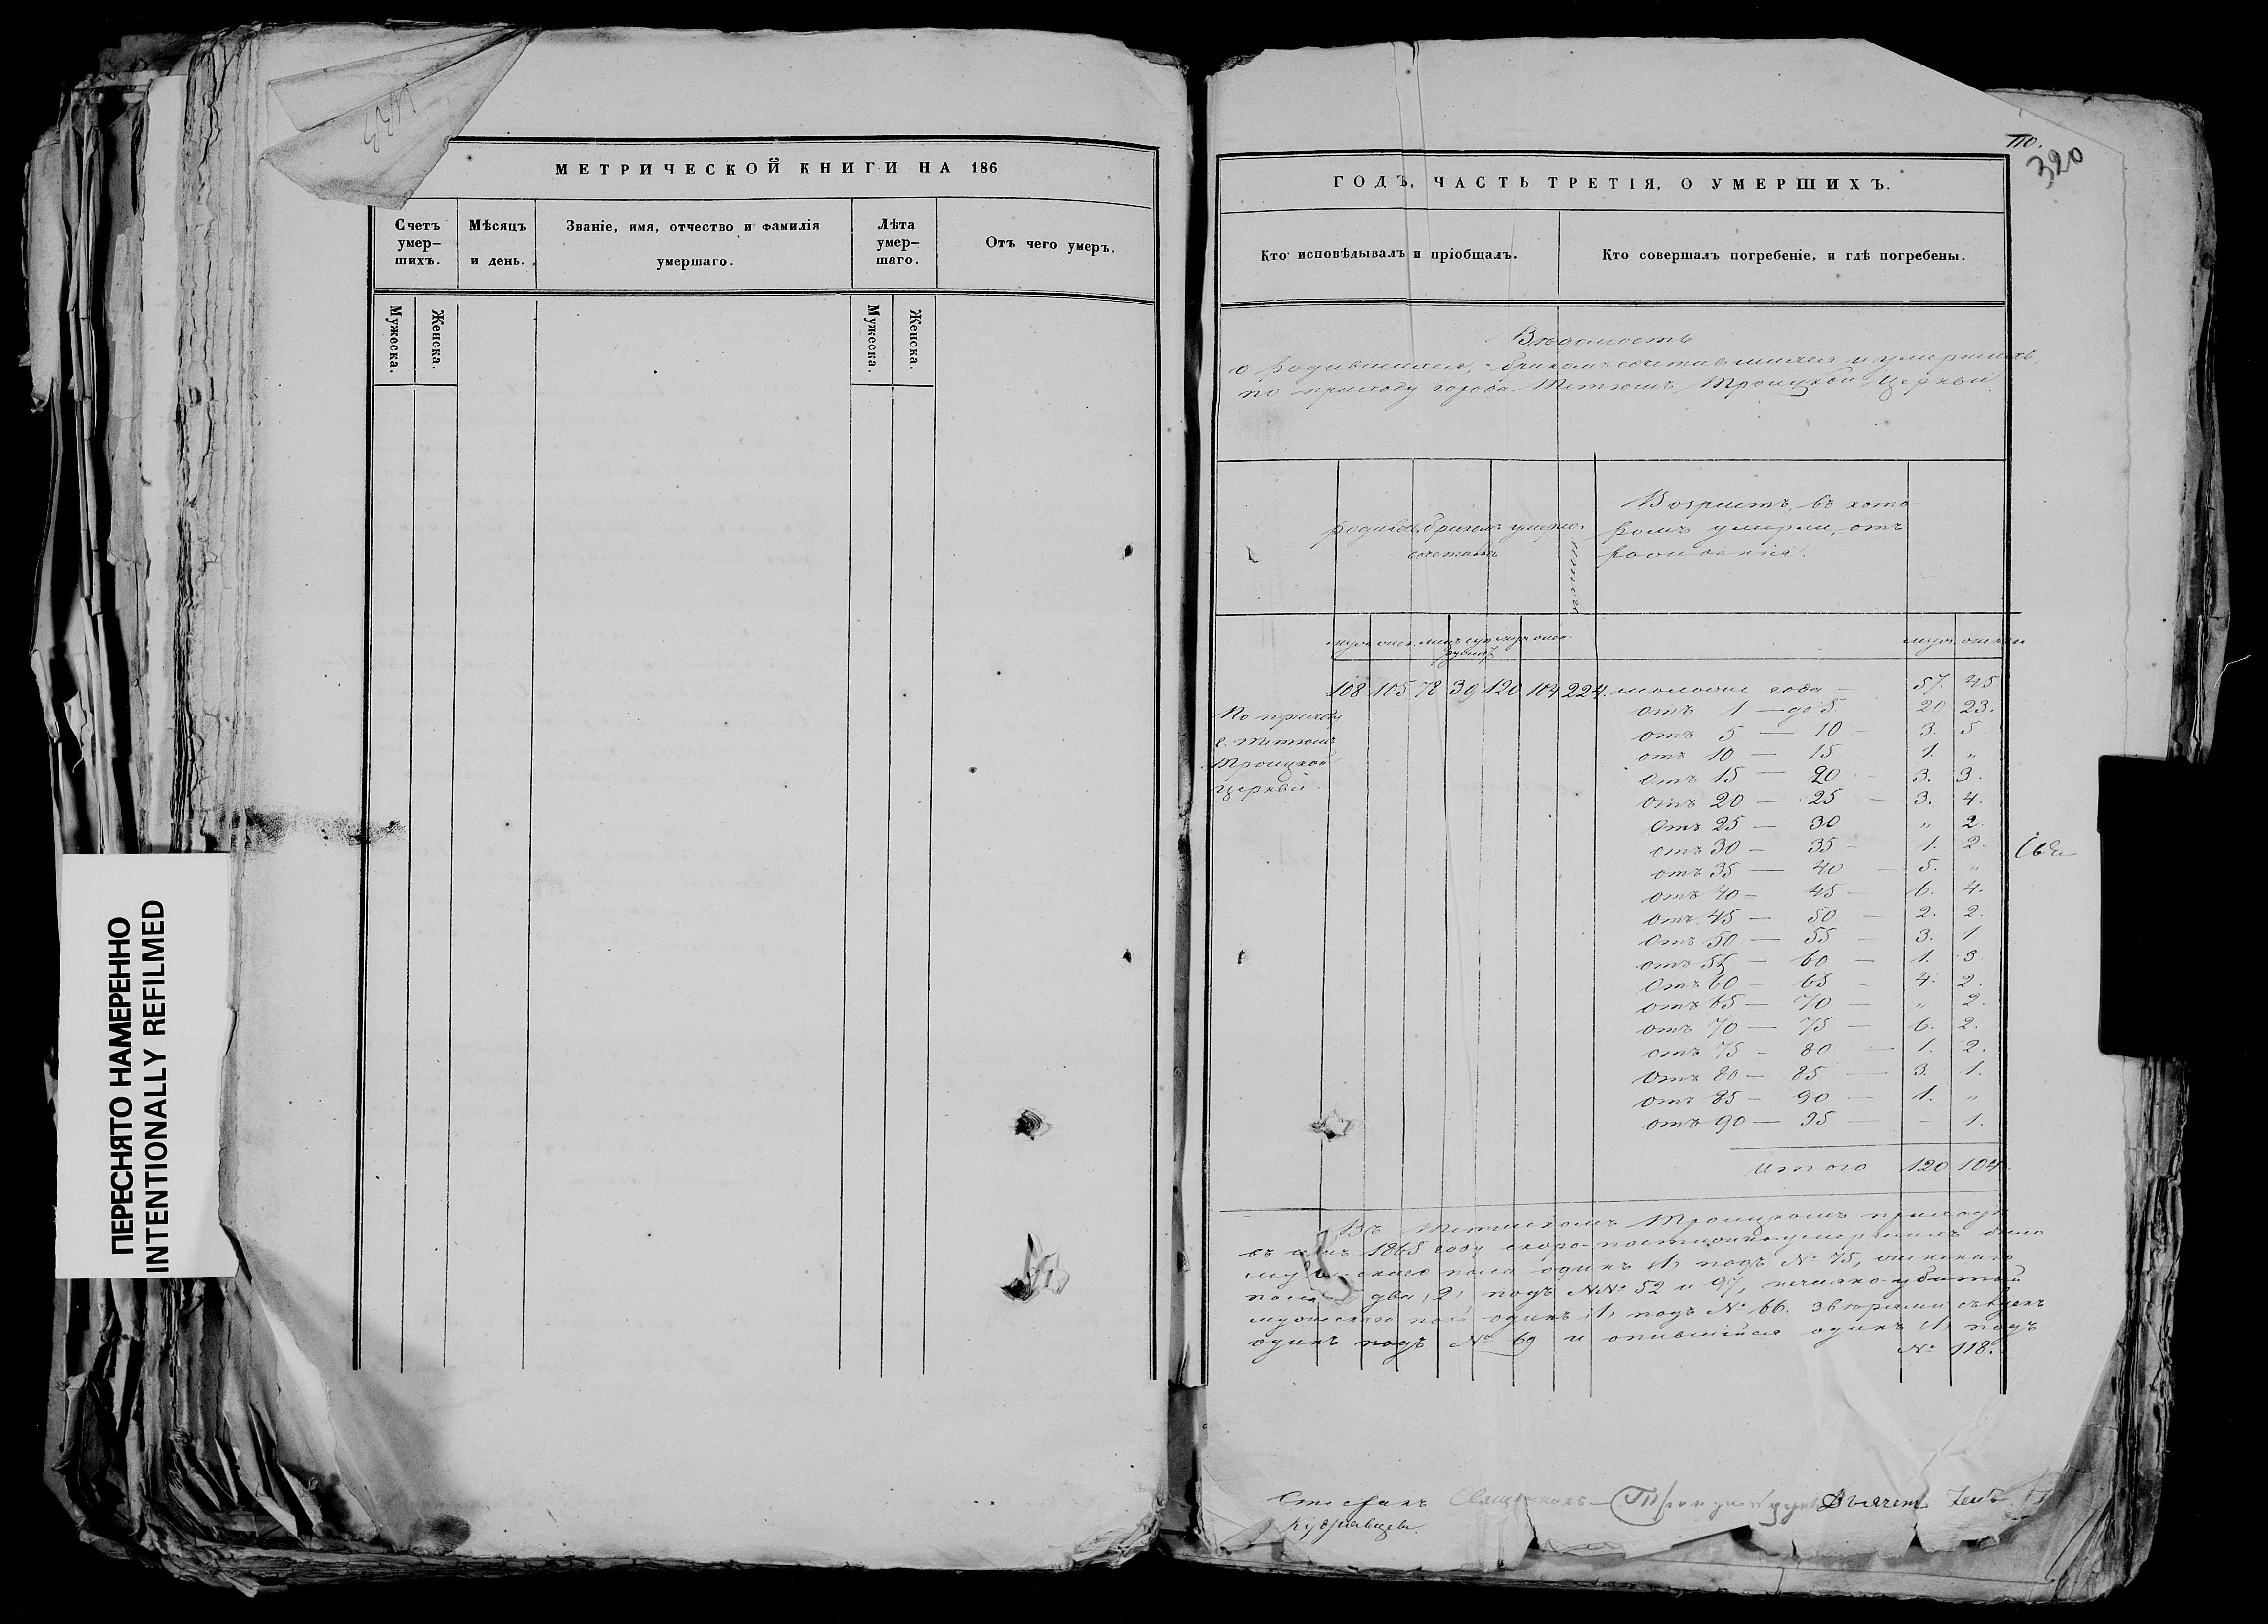 МЕТРИЧЕСКОЙ КНИГИ НА 186
Счетъ умер-шихъ.
Мѣсяцъ и день.
Званіе, имя, отчество и фамилія умершаго.
Лѣта умер-шаго.
Отъ чего умеръ.
Мужеска. Женска. Мужеска. Женска.
ПЕРЕСНЯТО НАМЕРЕННО
INTENTIONALLY REFILMED
320
ГОДЪ, ЧАСТЬ ТРЕТІЯ, О УМЕРШИХЪ.
Кто исповѣдывалъ и пріобщалъ.
Кто совершалъ погребеніе, и гдѣ погребены.
Вѣдомость
о родившихся, бракомъ сочетавшихся и умершихъ,
по приходу города Тетюшъ Троицкой Церкви.
Возрастъ, въ кото
ромъ умерли, отъ
рожденія.
108 105 78 39 120 104 224.
По приходу
г. Тетюшъ
Троицкой
Церкви.
моложе года — 57. 45
отъ 1 — до 5 20 23.
отъ 5 — 10 — 3. 5
отъ 10 — 15 1. „
отъ 15 — 20 — 3. 3.
отъ 20 — 25 — 3. 4.
отъ 25 — 30 „ 2.
отъ 30 — 35 — 1. 2.
отъ 35 — 40 — 5. „
отъ 40 — 45 — 6. 4.
отъ 45 — 50 — 2. 2.
отъ 50 — 55 — 3. 1
отъ 55 — 60 — 1. 3
отъ 60 — 65 — 4. 2.
отъ 65 — 70 — „ 2.
отъ 70 — 75 — 6. 2.
отъ 75 — 80 — 1. 2.
отъ 80 — 85 — 3. 1.
отъ 85 — 90 — 1. „
отъ 90 — 95 — - 1.
Итого 120 104.
Въ Троицкомъ приходѣ
въ 1865 году умершихъ было
пола одинъ (1) подъ № 75, женскаго
пола два (2) подъ №№ 52 и 97,
мужескаго пола одинъ (1) подъ № 66.
одинъ подъ № 69 и опившійся одинъ (1) подъ
№ 118.
Священникъ
Кудрявцевъ.